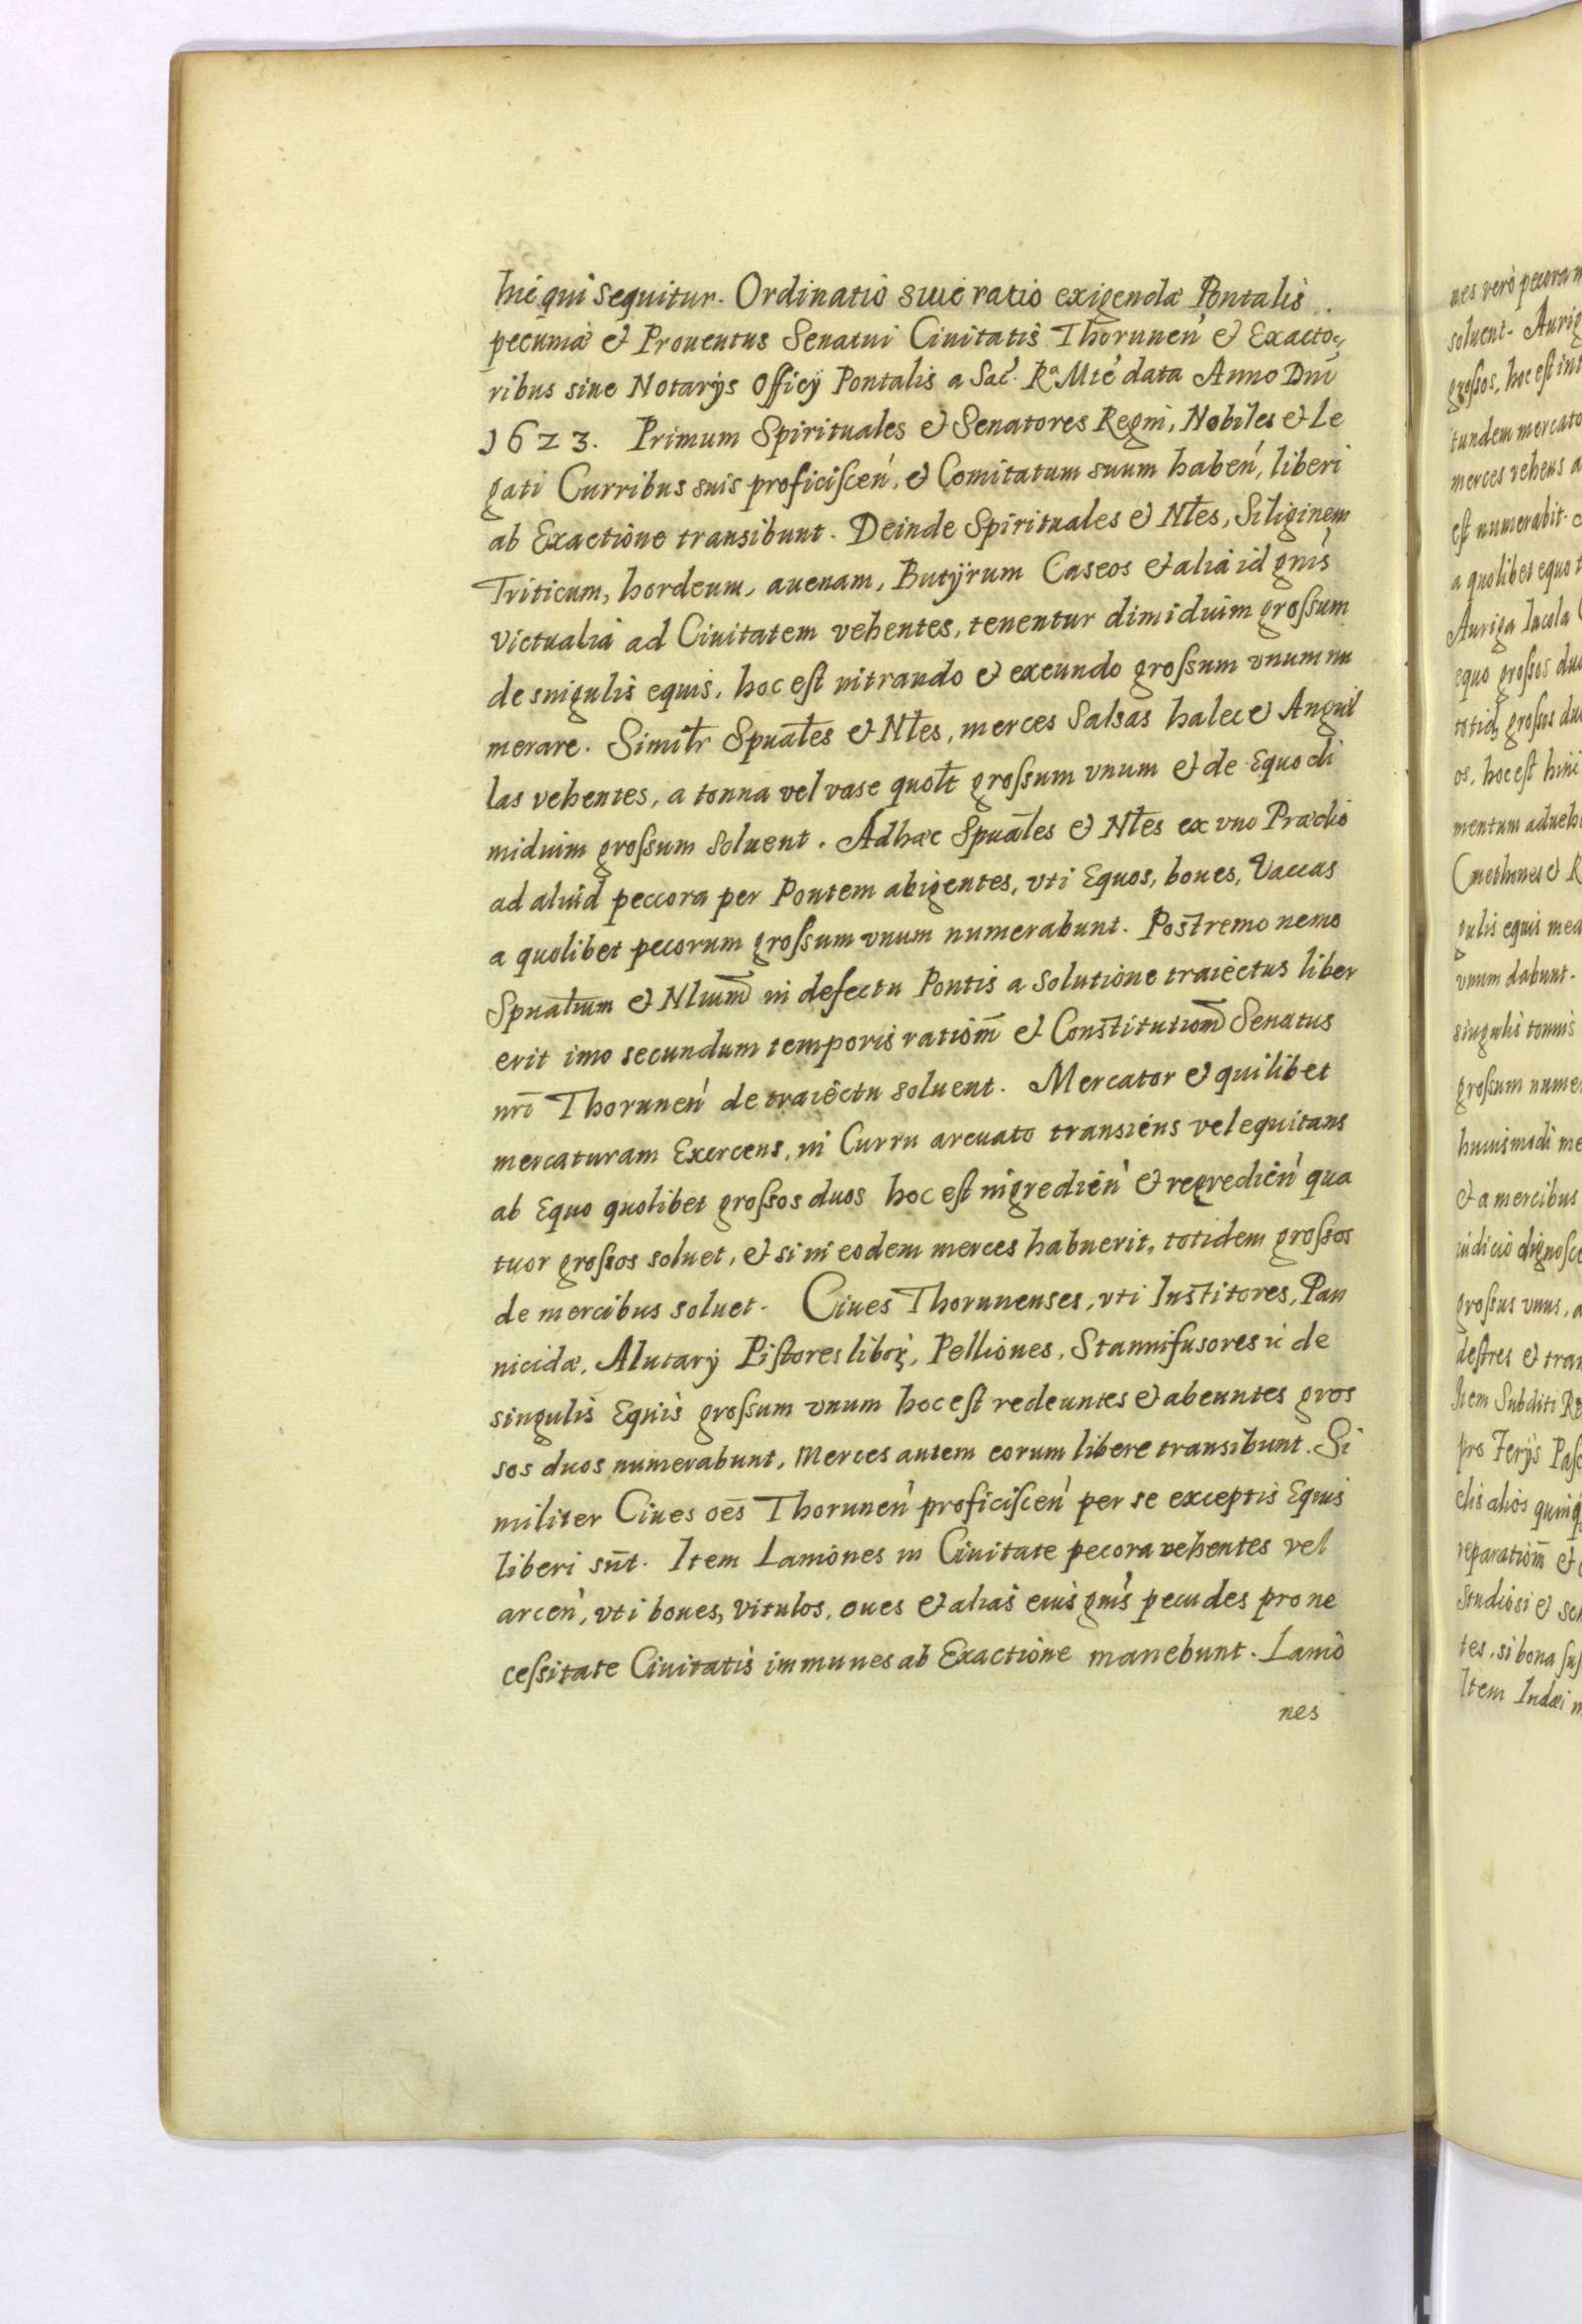 hic qui sequitur. Ordinatio siue ratio exigendæ Pontalis
pecuniæ et Prouentus Senatui Ciuitatis Thorunen̕ et Exacto
ribus siue Notarijs Officij Pontalis a Sac̕. Rª Mte̕ data Anno Dn̄i
1623. Primum Spirituales et Senatores Regni, Nobiles et Le
gati Curribus suis proficiscen̕, et Comitatum suum haben̕, liberi
ab Exactione transibunt. Deinde Spirituales et Nłes, Siliginem
Triticum, hordeum, auenam, Butÿrum Caseos et alia id gnis̕
victualia ad Ciuitatem vehentes, tenentur dimidium grossum
de singulis equis, hoc est intrando et exeundo grossum vnum nu
merare. Similr̄ Spuałes et Nłes, merces Salsas halec et Anguil
las vehentes, a tonna vel vase quolt̄ grossum vnum et de Equo di
midium grossum soluent. Adhæc Spuałes et Nłes ex vno Prædio
ad aliud peccora per Pontem abigentes, vti Equos, boues, Vaccas
a quolibet pecorum grossum vnum numerabunt. Postremo nemo
Spualium̄ et Nlium̄ in defectu Pontis a solutione traiectus liber
erit imo secundum temporis ratiom̄ et Constitutiom̄ Senatus
nrī Thorunen̕ de traiectu soluent. Mercator et quilibet
mercaturam Exercens, in Curru arcuato transiens vel equitans
ab Equo quolibet grossos duos hoc est ingredien̕ et regredien̕ qua
tuor grossos soluet, et si in eodem merces habuerit, totidem grossos
de mercibus soluet. Ciues Thorunenses, vti Institores, Pan
nicidæ, Alutarij Pistores liboꝝ, Pelliones, Stannifusores ic̕ de
singulis Equis grossum vnum hoc est redeuntes et abeuntes gros
sos duos numerabunt, Merces autem eorum libere transibunt. Si
militer Ciues oēs Thorunen̕ proficiscen̕ per se exceptis Equis
liberi sn̄t. Item Laniones in Ciuitate pecora vehentes vel
arcen̕, vti boues, vitulos, oues et alias eius gnis̕ pecudes pro ne
cessitate Ciuitatis immunes ab Exactione manebunt. Lanio
nes
nes vero pecoram
soluent. Aurig
grossos, hoc est int
tundem mercato
merces vehens a
est numerabit.
a quolibet equo t
Auriga Incola
equo grossos du
totidꝫ grossos du
os, hoc est hini
mentum adueh
Cmethones et R
gulis equis mea
vnum dabunt.
singulis tonnis
grossum nume
huiusmodi me
et a mercibus
iudicio dignosc
grossus vnus, a
destres et tran
Item Subditi Re
pro Ferijs Pasc
elis alios quinq
reparatiom̄ et
Studiosi et sch
tes, si bona suf
Item Iudæi in